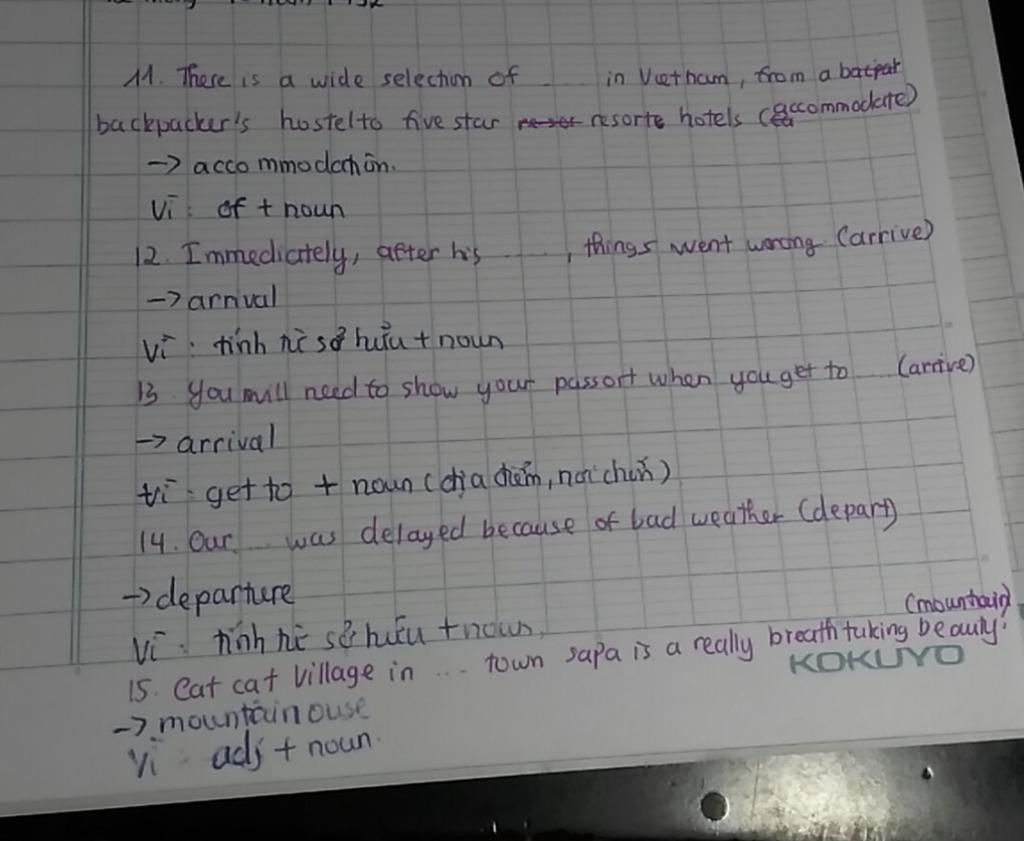 11. There is a wide selection of ..... in Vietnam, from a
backpacker's hostel to five star resorts hotels (accommodate)
-> accommodation.
Vì: of + noun
12. Immediately, after his ....., things went wrong (arrive)
-> arrival
Vì: tính từ sở hữu + noun
13. You will need to show your passort when you get to ..... (arrive)
-> arrival
Vì: get to + noun (địa điểm, nơi chốn)
14. Our .... was delayed because of bad weather (depart)
-> departure
Vì: tính từ sở hữu + noun.
(mountain)
15. Cat cat village in ... town sapa is a really breath tuking beauty.
KOKUYO
-> mountainouse
Vì: adj + noun.